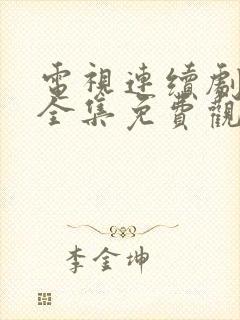 電視連續劇
全集免費觀
李金坤